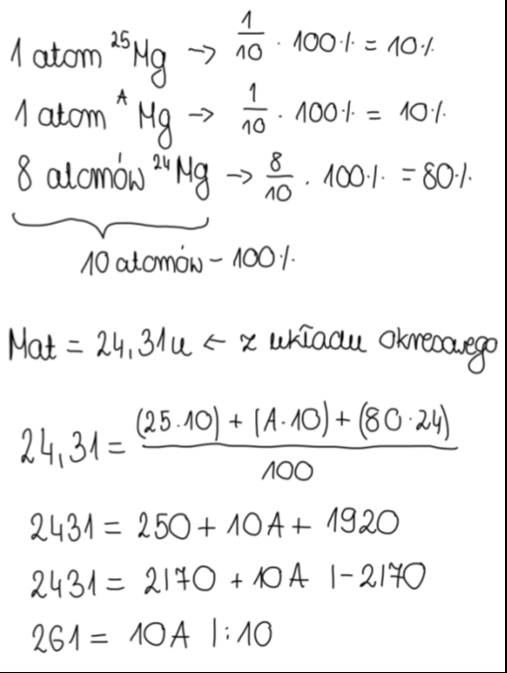 1 atom ²⁵Mg → 1/10 · 100% = 10%
1 atom ᴬMg → 1/10 · 100% = 10%
8 atomów ²⁴Mg → 8/10 · 100% = 80%
10 atomów – 100%
Mat = 24,31u ← z układu okresowego
24,31 = (25·10) + (A·10) + (80·24) / 100
2431 = 250 + 10A + 1920
2431 = 2170 + 10A |-2170
261 = 10A |:10